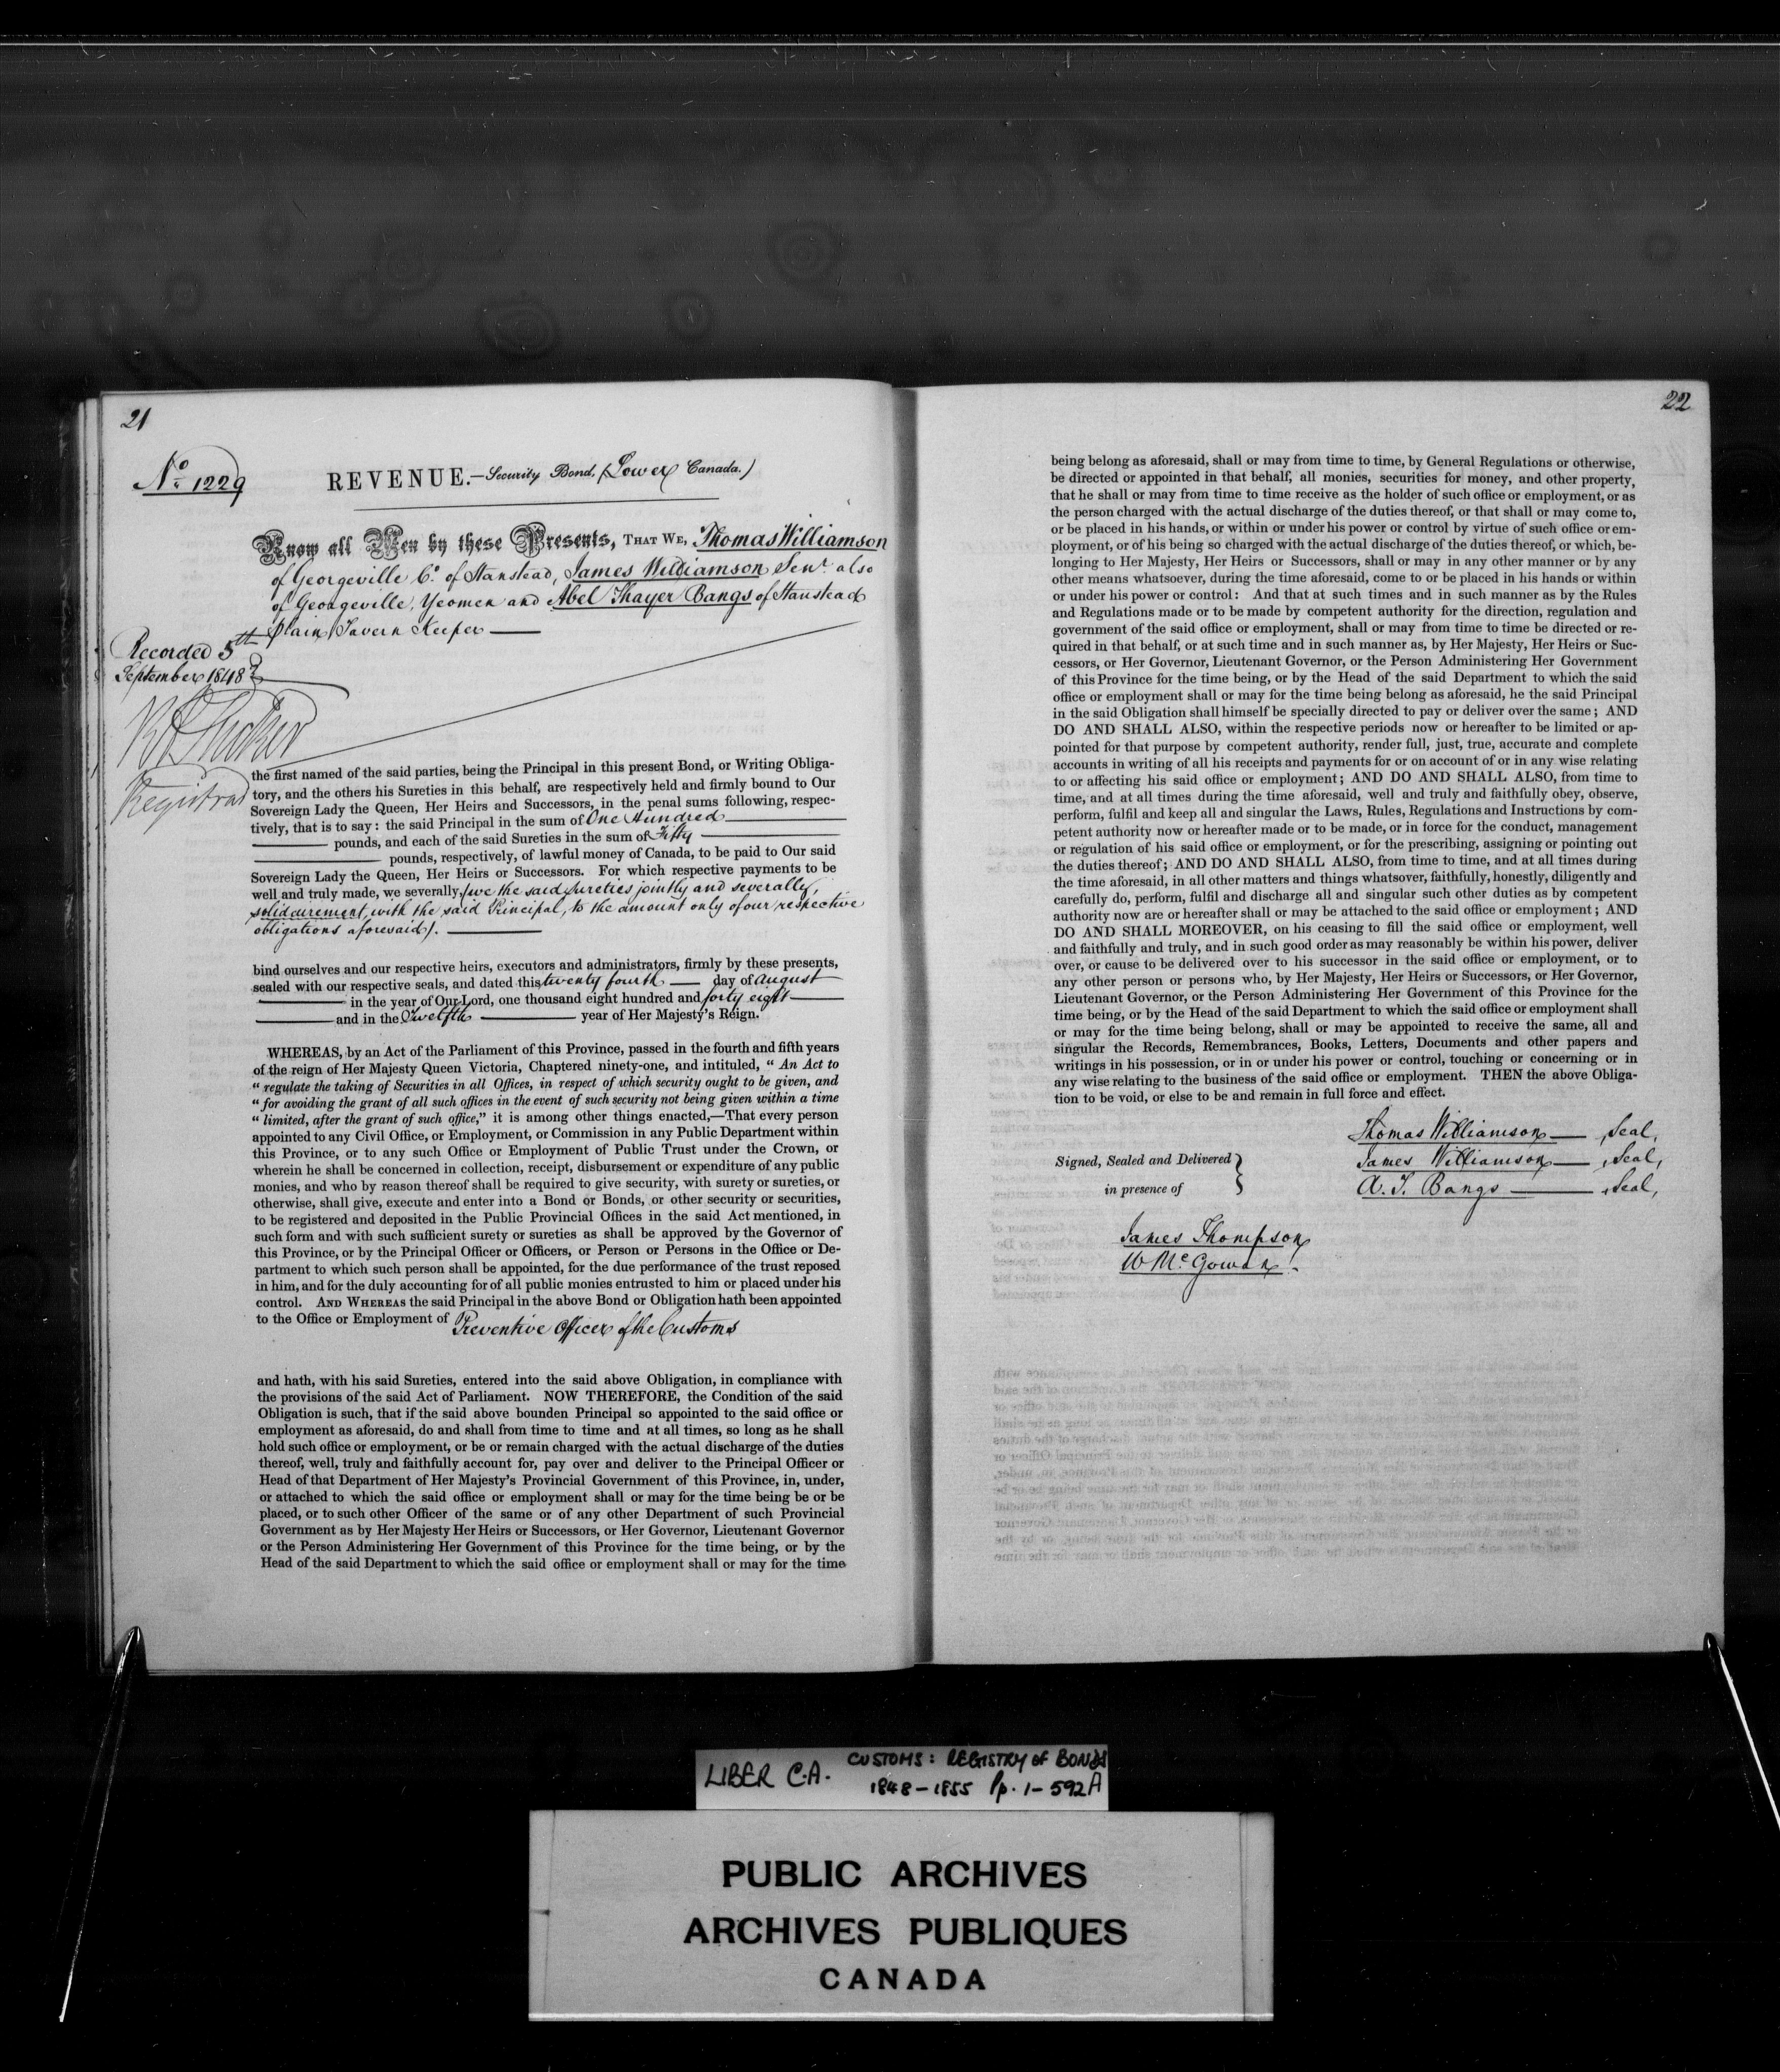 21
No 1229
REVENUE.—Security Bond, (Lower Canada.)
Know all Men by these Presents, THAT WE, Thomas Williamson
of Georgeville Co. of Stanstead, James Williamson Senr. also
of Georgeville, Yeomen and Abel Thayer Bangs of Stanstead
plain, Tavern Keeper
Recorded 5th
September 1848
Registrar
the first named of the said parties, being the Principal in this present Bond, or Writing Obliga-
tory, and the others his Sureties in this behalf, are respectively held and firmly bound to Our
Sovereign Lady the Queen, Her Heirs and Successors, in the penal sums following, respec-
tively, that is to say: the said Principal in the sum of One Hundred
pounds, and each of the said Sureties in the sum of Fifty
pounds, respectively, of lawful money of Canada, to be paid to Our said
Sovereign Lady the Queen, Her Heirs or Successors. For which respective payments to be
well and truly made, we severally, (we the said Sureties jointly and severally,
solidairement, with the said Principal, to the amount only of our respective
obligations aforesaid).
bind ourselves and our respective heirs, executors and administrators, firmly by these presents,
sealed with our respective seals, and dated this twenty fourth day of August
in the year of Our Lord, one thousand eight hundred and forty eight
and in the Twelfth year of Her Majesty's Reign.
WHEREAS, by an Act of the Parliament of this Province, passed in the fourth and fifth years
of the reign of Her Majesty Queen Victoria, Chaptered ninety-one, and intituled, " An Act to
" regulate the taking of Securities in all Offices, in respect of which security ought to be given, and
" for avoiding the grant of all such offices in the event of such security not being given within a time
" limited, after the grant of such office," it is among other things enacted,—That every person
appointed to any Civil Office, or Employment, or Commission in any Public Department within
this Province, or to any such Office or Employment of Public Trust under the Crown, or
wherein he shall be concerned in collection, receipt, disbursement or expenditure of any public
monies, and who by reason thereof shall be required to give security, with surety or sureties, or
otherwise, shall give, execute and enter into a Bond or Bonds, or other security or securities,
to be registered and deposited in the Public Provincial Offices in the said Act mentioned, in
such form and with such sufficient surety or sureties as shall be approved by the Governor of
this Province, or by the Principal Officer or Officers, or Person or Persons in the Office or De-
partment to which such person shall be appointed, for the due performance of the trust reposed
in him, and for the duly accounting for of all public monies entrusted to him or placed under his
control. AND WHEREAS the said Principal in the above Bond or Obligation hath been appointed
to the Office or Employment of Preventive Officer of the Customs
and hath, with his said Sureties, entered into the said above Obligation, in compliance with
the provisions of the said Act of Parliament. NOW THEREFORE, the Condition of the said
Obligation is such, that if the said above bounden Principal so appointed to the said office or
employment as aforesaid, do and shall from time to time and at all times, so long as he shall
hold such office or employment, or be or remain charged with the actual discharge of the duties
thereof, well, truly and faithfully account for, pay over and deliver to the Principal Officer or
Head of that Department of Her Majesty's Provincial Government of this Province, in, under,
or attached to which the said office or employment shall or may for the time being be or be
placed, or to such other Officer of the same or of any other Department of such Provincial
Government as by Her Majesty Her Heirs or Successors, or Her Governor, Lieutenant Governor
or the Person Administering Her Government of this Province for the time being, or by the
Head of the said Department to which the said office or employment shall or may for the time
22
being belong as aforesaid, shall or may from time to time, by General Regulations or otherwise,
be directed or appointed in that behalf, all monies, securities for money, and other property,
that he shall or may from time to time receive as the holder of such office or employment, or as
the person charged with the actual discharge of the duties thereof, or that shall or may come to,
or be placed in his hands, or within or under his power or control by virtue of such office or em-
ployment, or of his being so charged with the actual discharge of the duties thereof, or which, be-
longing to Her Majesty, Her Heirs or Successors, shall or may in any other manner or by any
other means whatsoever, during the time aforesaid, come to or be placed in his hands or within
or under his power or control: And that at such times and in such manner as by the Rules
and Regulations made or to be made by competent authority for the direction, regulation and
government of the said office or employment, shall or may from time to time be directed or re-
quired in that behalf, or at such time and in such manner as, by Her Majesty, Her Heirs or Suc-
cessors, or Her Governor, Lieutenant Governor, or the Person Administering Her Government
of this Province for the time being, or by the Head of the said Department to which the said
office or employment shall or may for the time being belong as aforesaid, he the said Principal
in the said Obligation shall himself be specially directed to pay or deliver over the same; AND
DO AND SHALL ALSO, within the respective periods now or hereafter to be limited or ap-
pointed for that purpose by competent authority, render full, just, true, accurate and complete
accounts in writing of all his receipts and payments for or on account of or in any wise relating
to or affecting his said office or employment; AND DO AND SHALL ALSO, from time to
time, and at all times during the time aforesaid, well and truly and faithfully obey, observe,
perform, fulfil and keep all and singular the Laws, Rules, Regulations and Instructions by com-
petent authority now or hereafter made or to be made, or in force for the conduct, management
or regulation of his said office or employment, or for the prescribing, assigning or pointing out
the duties thereof; AND DO AND SHALL ALSO, from time to time, and at all times during
the time aforesaid, in all other matters and things whatsoever, faithfully, honestly, diligently and
carefully do, perform, fulfil and discharge all and singular such other duties as by competent
authority now are or hereafter shall or may be attached to the said office or employment; AND
DO AND SHALL MOREOVER, on his ceasing to fill the said office or employment, well
and faithfully and truly, and in such good order as may reasonably be within his power, deliver
over, or cause to be delivered over to his successor in the said office or employment, or to
any other person or persons who, by Her Majesty, Her Heirs or Successors, or Her Governor,
Lieutenant Governor, or the Person Administering Her Government of this Province for the
time being, or by the Head of the said Department to which the said office or employment shall
or may for the time being belong, shall or may be appointed to receive the same, all and
singular the Records, Remembrances, Books, Letters, Documents and other papers and
writings in his possession, or in or under his power or control, touching or concerning or in
any wise relating to the business of the said office or employment. THEN the above Obliga-
tion to be void, or else to be and remain in full force and effect.
Thomas Williamson Seal,
Signed, Sealed and Delivered James Williamson Seal,
in presence of A. T. Bangs Seal,
James Thompson
W McGowan
LIBER C.A. CUSTOMS: REGISTRY of BONDS
1848-1855 Pp. 1-592A
PUBLIC ARCHIVES
ARCHIVES PUBLIQUES
CANADA